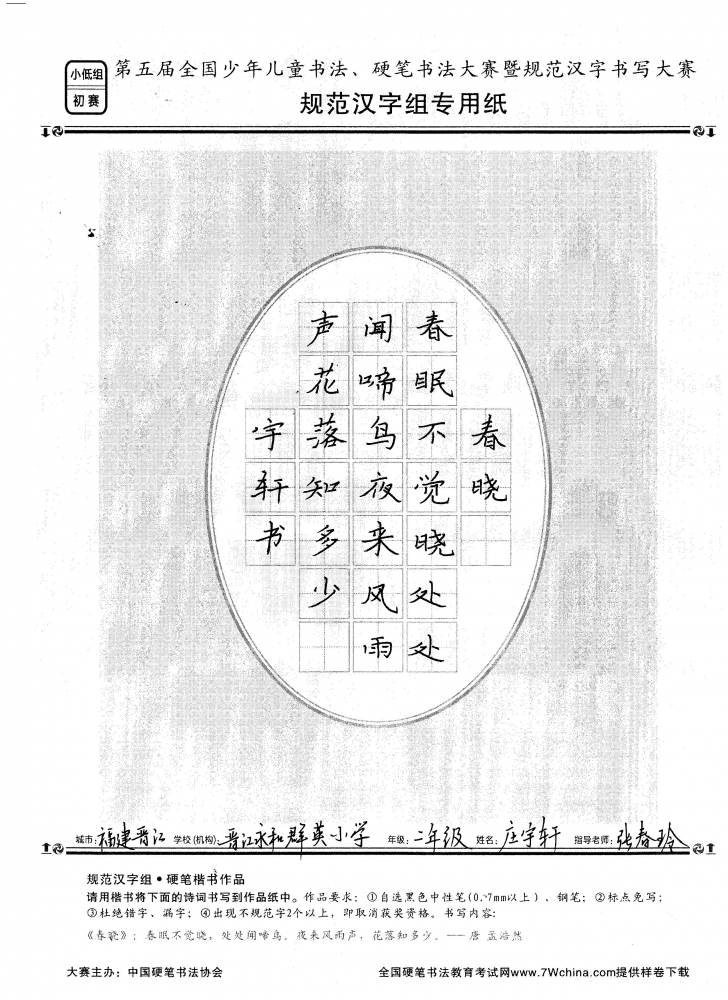 小低组
初赛
第五届全国少年儿童书法、硬笔书法大赛暨规范汉字书写大赛
规范汉字组专用纸
春晓
春眠不觉晓处处
闻啼鸟夜来风雨
声花落知多少
宇轩书
城市：福建晋江 学校(机构)：晋江永和群英小学 年级：二年级 姓名：庄宇轩 指导老师：张春玲
规范汉字组●硬笔楷书作品
请用楷书将下面的诗词书写到作品纸中。作品要求：①自选黑色中性笔(0.7mm以上)、钢笔；②标点免写；
③杜绝错字、漏字；④出现不规范字2个以上，即取消获奖资格。书写内容：
《春晓》：春眠不觉晓，处处闻啼鸟。夜来风雨声，花落知多少。——唐 孟浩然
大赛主办：中国硬笔书法协会
全国硬笔书法教育考试网www.7Wchina.com提供样卷下载